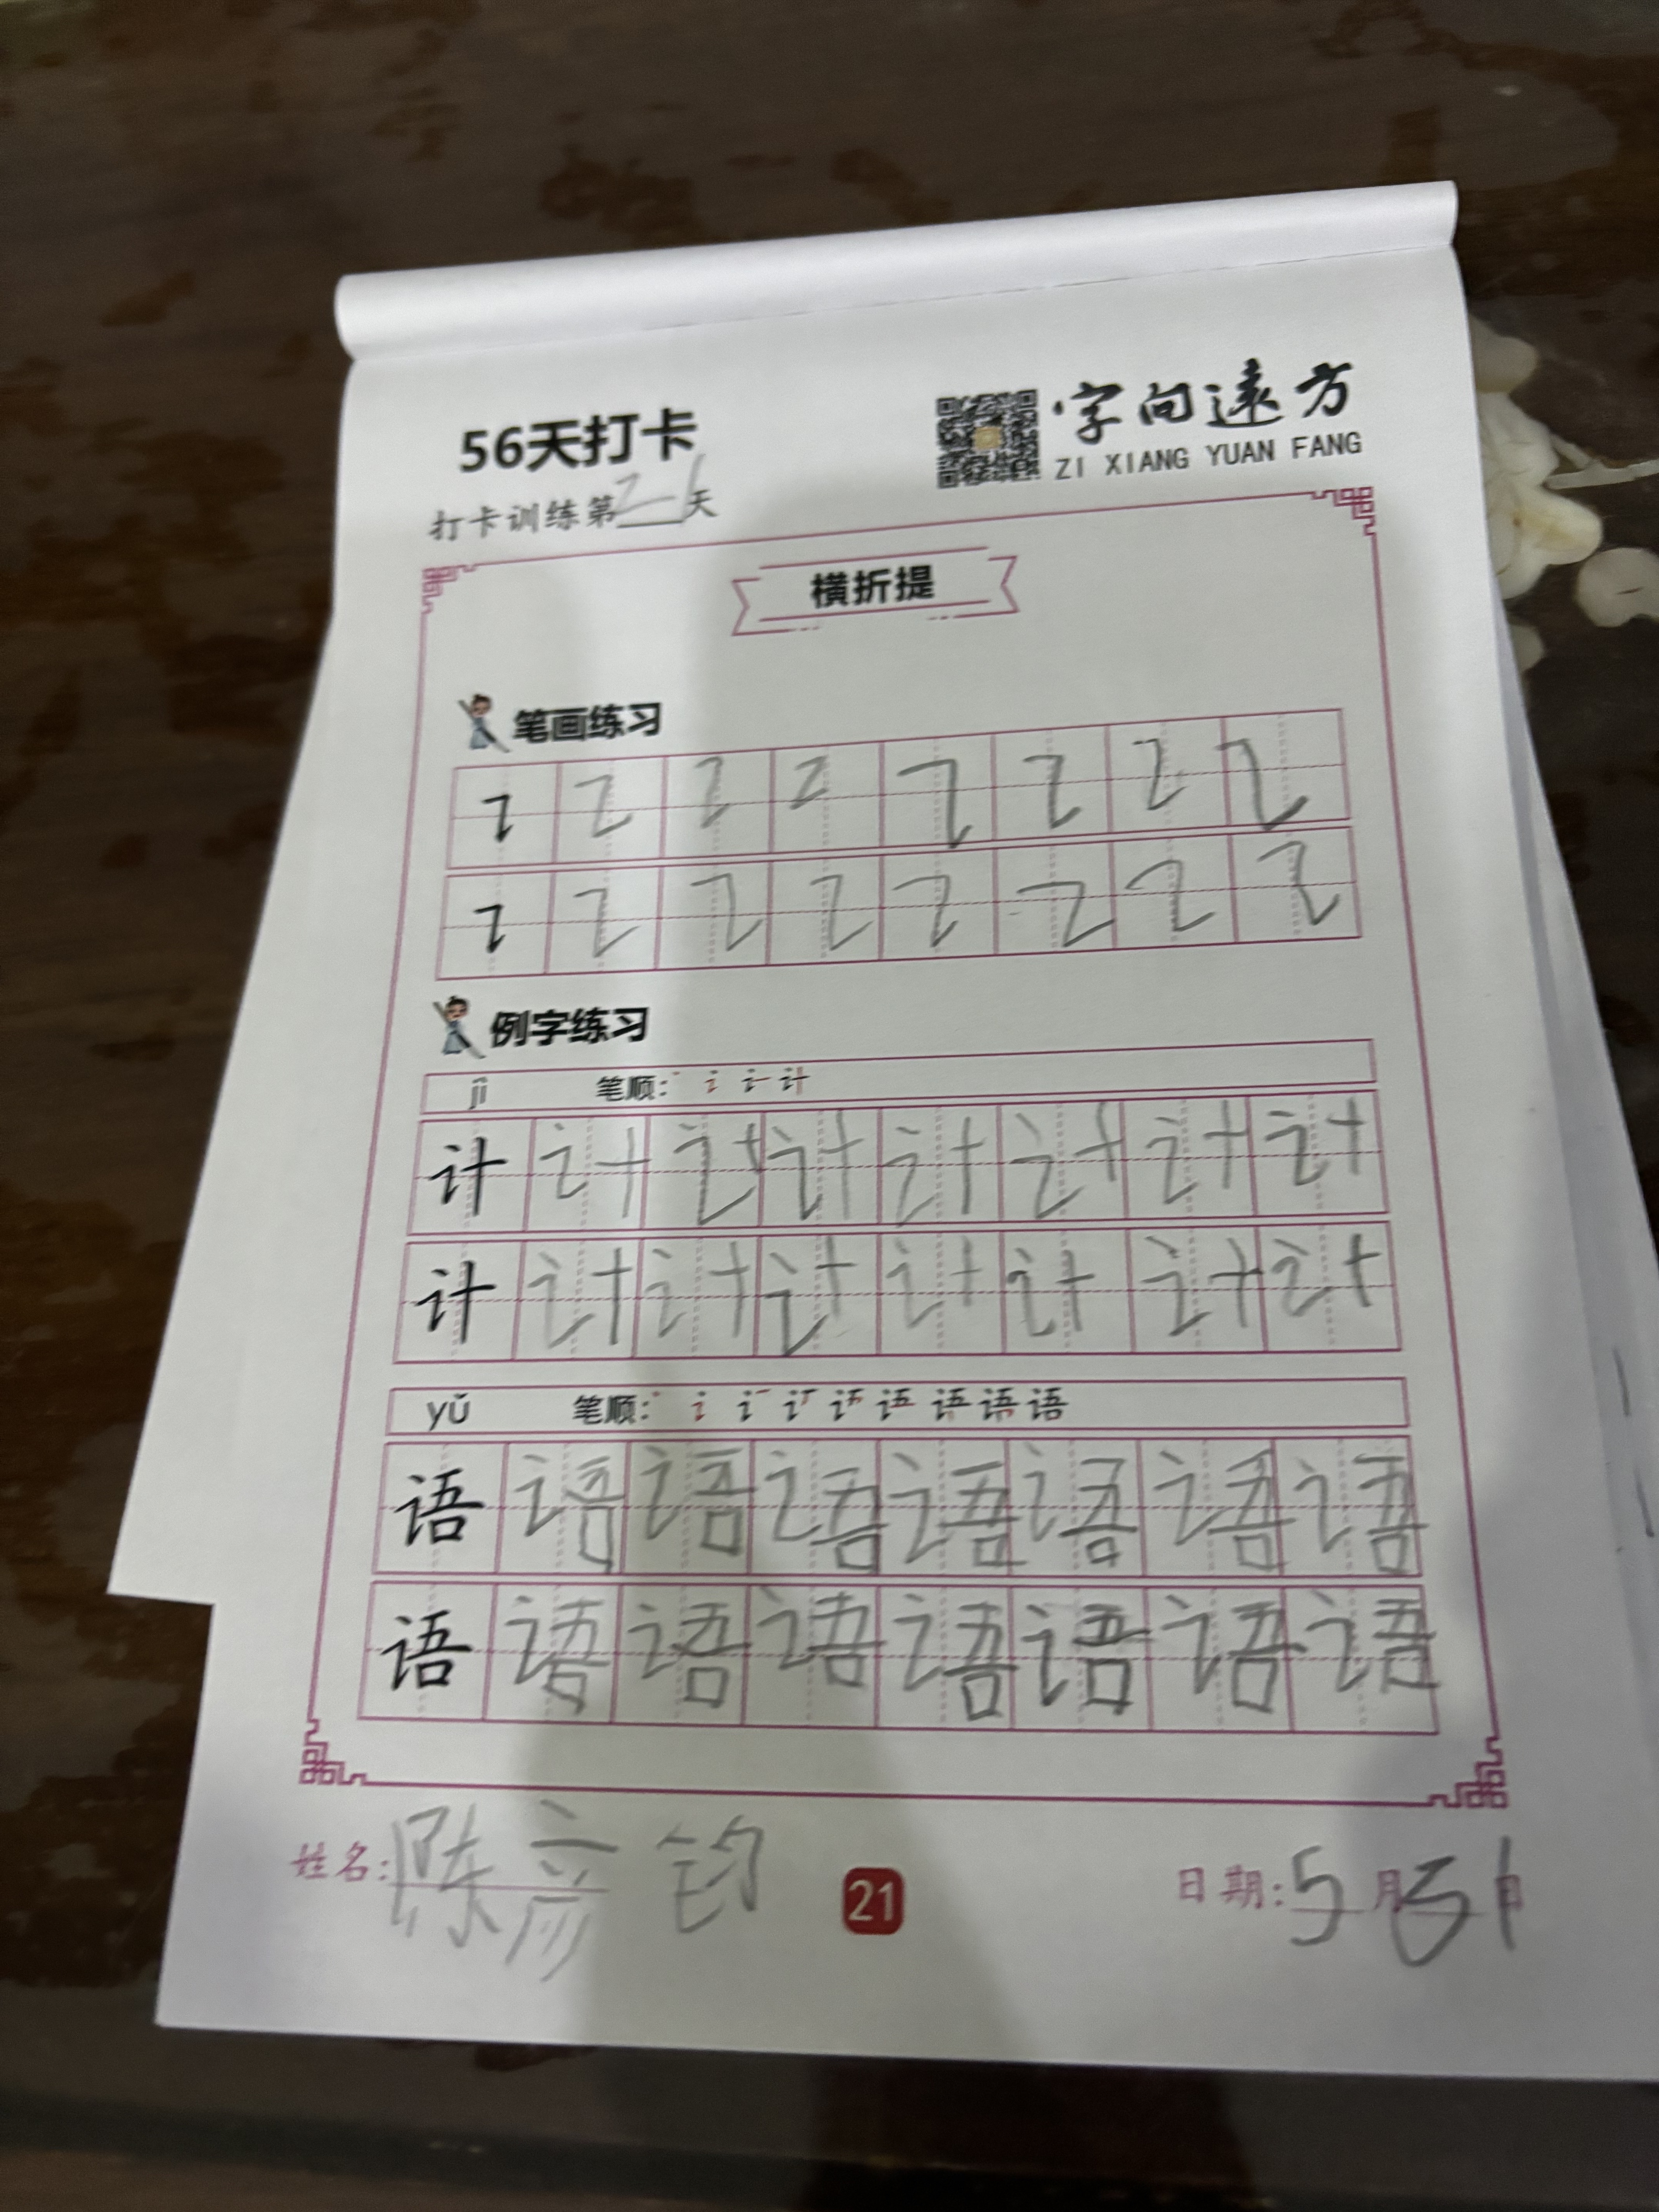 56天打卡
字向远方
ZI XIANG YUAN FANG
打卡训练第21天
横折提
笔画练习
例字练习
jì 笔顺:
计 计 计 计 计 计 计 计
计 计 计 计 计 计 计 计
yǔ 笔顺:
语 语 语 语 语 语 语 语
语 语 语 语 语 语 语 语
姓名:陈彦钧
21
日期:5月31日